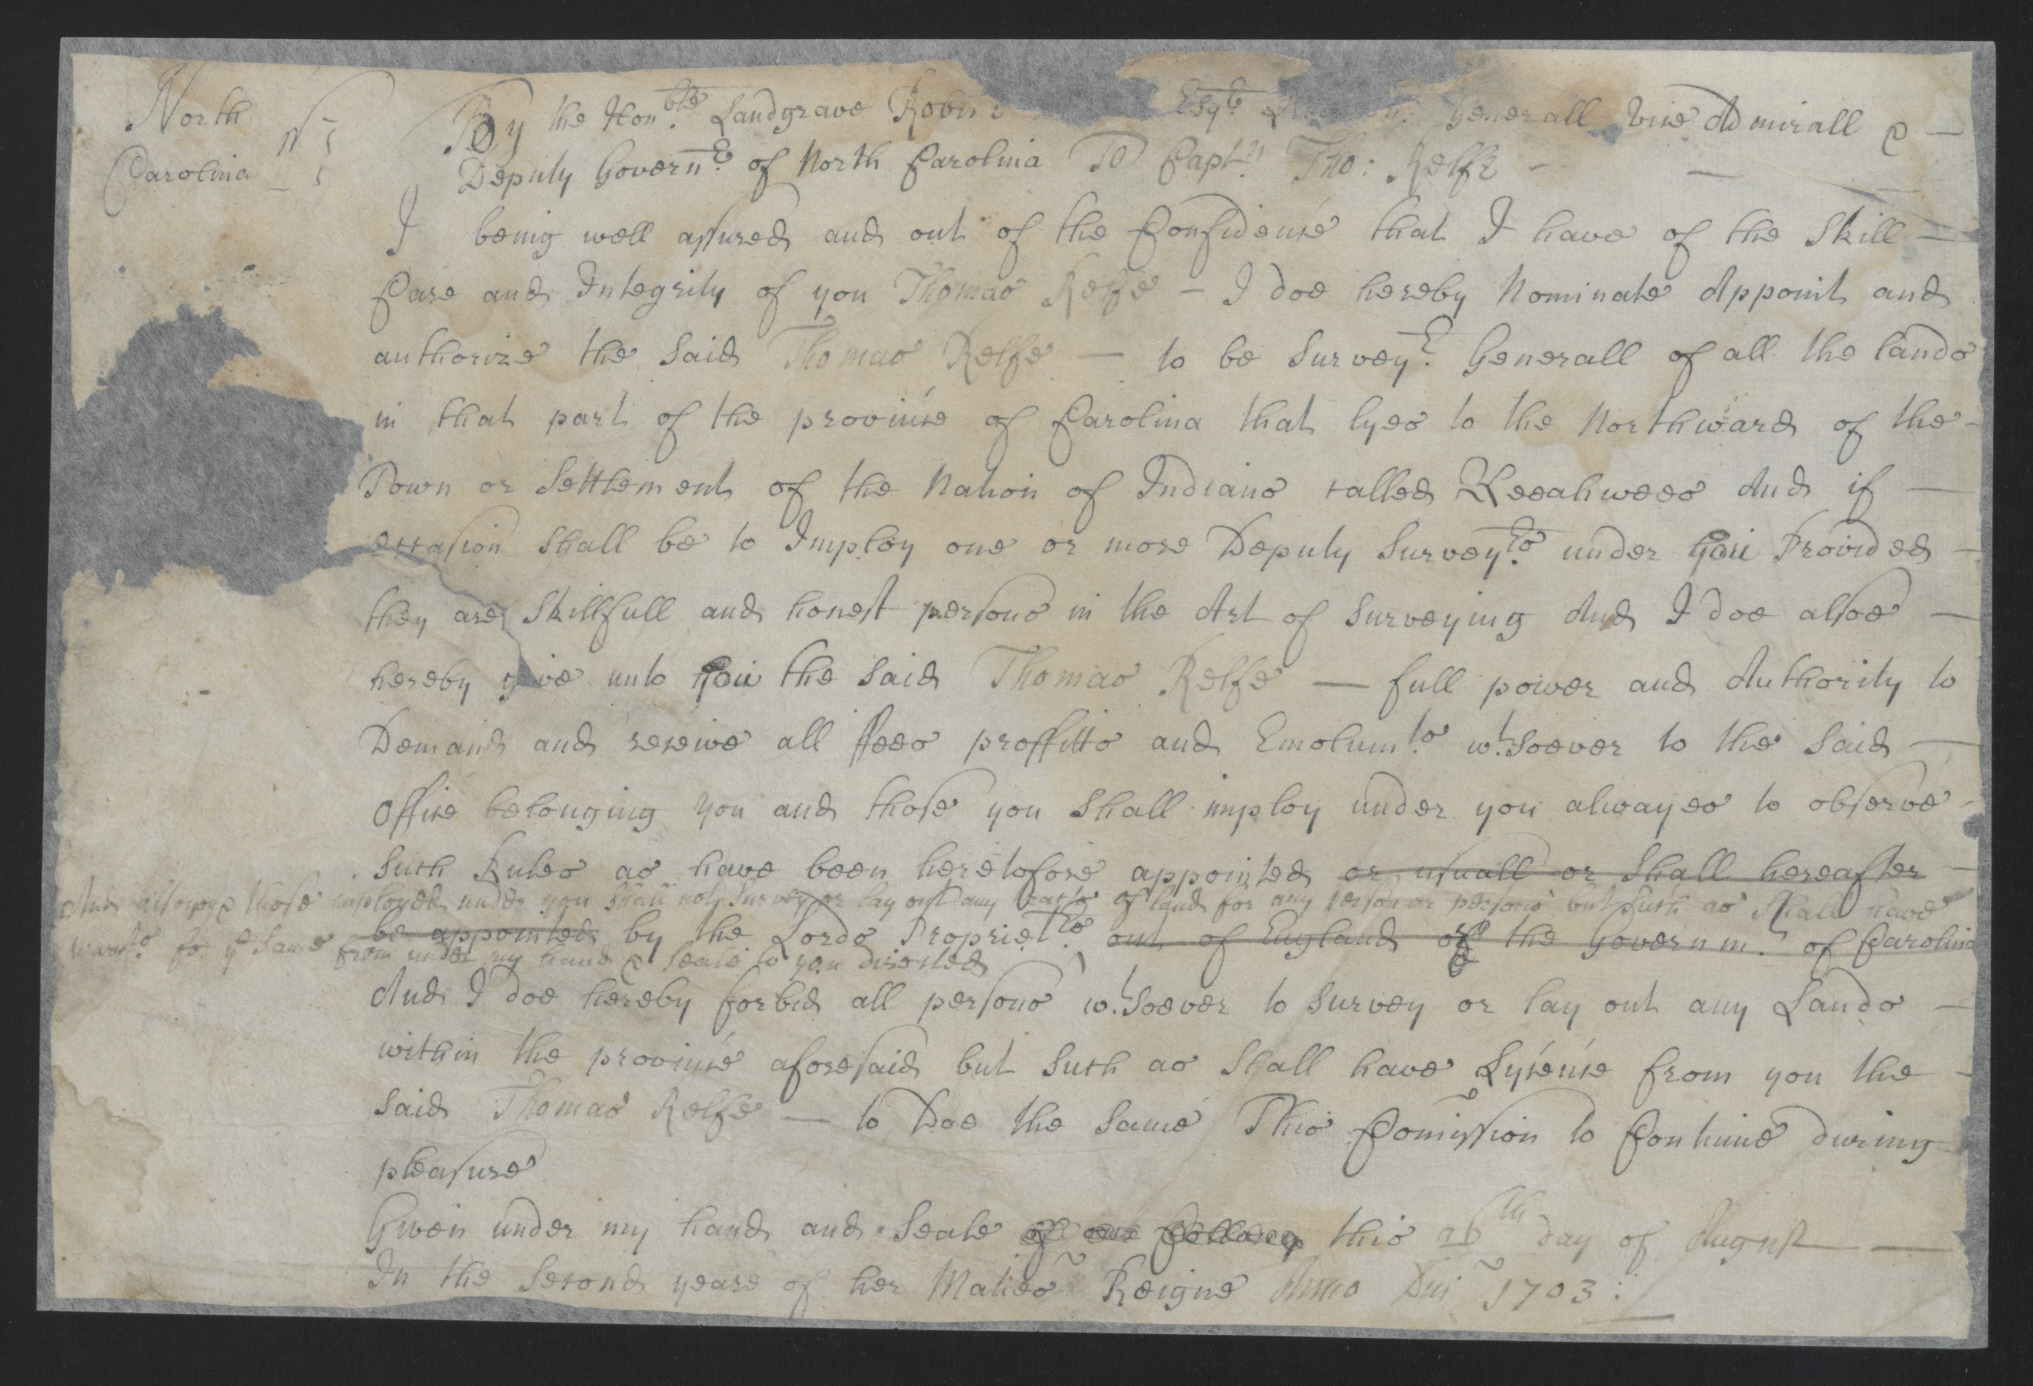 North
Carolina
By the Honble Landgrave Robert Esqr Generall Vice Admirall &
Deputy Governr of North Carolina To Captn Tho: Relfe
I being well assured and out of the Confidence that I have of the Skill
Care and Integrity of you Thomas Relfe — I doe hereby Nominate Appoint and
authorize the said Thomas Relfe — to be Surveyr Generall of all the lands
in that part of the province of Carolina that lyes to the Northward of the
Town or Settlement of the Nation of Indians called Weeahwees And if
occasion shall be to Imploy one or more Deputy Surveyrs under you Provided
they are Skillfull and honest persons in the Art of Surveying And I doe alsoe
hereby give unto you the said Thomas Relfe — full power and Authority to
Demand and receive all ffees proffitts and Emolumts wtsoever to the said
Office belonging you and those you shall imploy under you alwayes to observe
Such Rules as have been heretofore appointed or usuall or Shall hereafter
And allways those imployed under you Shall not Survey or lay out any parts of land for any person or persons but such as shall have
be appointed by the Lords Proprietrs out of England or the Governmt of Carolina
warrts for ye Same from under my hand & Seale to you directed
And I doe hereby forbid all persons wtsoever to Survey or lay out any Lands
within the province aforesaid but Such as Shall have Lycence from you the
said Thomas Relfe — to Doe the Same This Comission to Continue during
pleasure
Given under my hand and Seale of our Collony this 26th day of August
In the Second yeare of her Maties Reigne Anno Dni 1703: